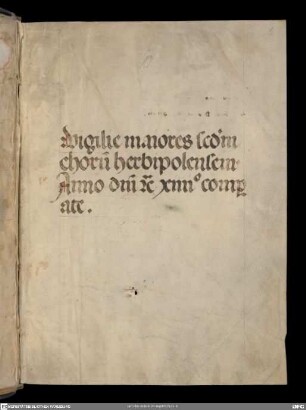 Vigilie maiores scdm
chorū herbipolensem
Anno dnī ꝛc xiiii° comp
ate.